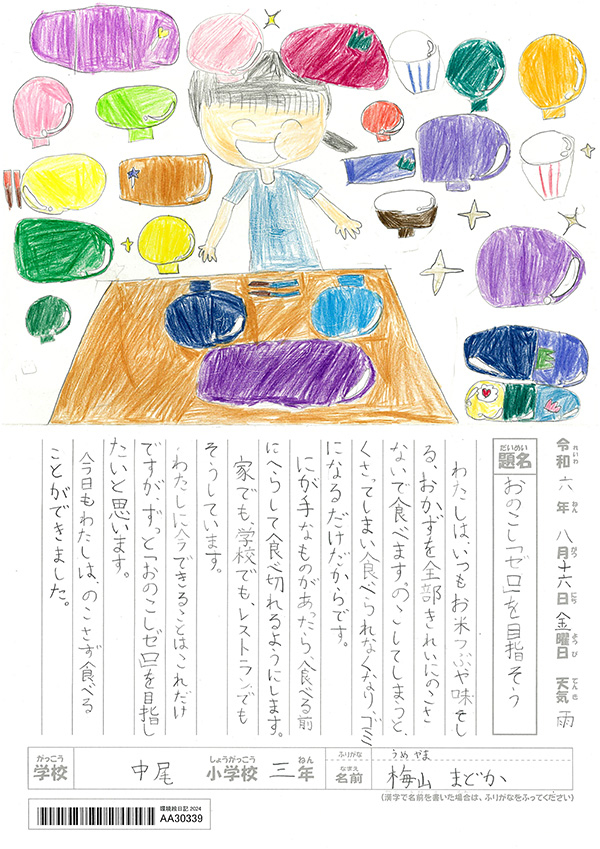 令和 六年 八月十六日 金曜日 天気 雨
れいわ ねん がつ にち ようび てんき
題名 おのこし「ゼロ」を目指そう
だいめい
わたしは、いつもお米つぶや味そし
る、おかずを全部きれいにのこさ
ないで食べます。のこしてしまうと、
くさってしまい食べられなくなり、ゴミ
になるだけだからです。
にが手なものがあったら、食べる前
にへらして食べ切れるようにします。
家でも、学校でも、レストランでも
そうしています。
わたしに今できることはこれだけ
ですが、ずっと「おのこしゼロ」を目指し
たいと思います。
今日もわたしは、のこさず食べる
ことができました。
がっこう しょうがっこう ねん ふりがな うめやま
学校 中尾 小学校 三年 名前 梅山 まどか
なまえ
(漢字で名前を書いた場合は、ふりがなをふってください)
環境絵日記 2024
AA30339